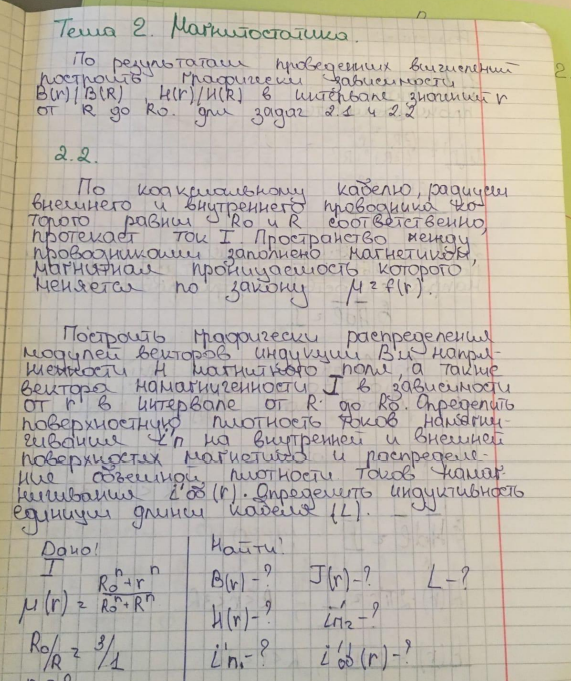 Тема 2. Магнитостатика.
По результатам проведенных вычислений
построить графически зависимости
B(r)/B(R), H(r)/H(R) в интервале значений r
от R до Ro. для задач 2.1 и 2.2
2
2.2.
По коаксиальному кабелю, радиусы
внешнего и внутреннего проводника ко-
торого равны Ro и R соответственно,
протекает ток I. Пространство между
проводниками заполнено магнетиком,
магнитная проницаемость которого
меняется по закону μ = f(r).
Построить графически распределения
модулей векторов индукции B и напря-
женности H магнитного поля, а также
вектора намагниченности I в зависимости
от r в интервале от R до Ro. Определить
поверхностную плотность токов намагни-
чивания i'п на внутренней и внешней
поверхностях магнетика и распределе-
ние объемной плотности токов намаг-
ничивания i'об(r). Определить индуктивность
единицы длины кабеля (L).
Дано: Найти:
I B(r)-? J(r)-? L-?
μ(r) = (Ro^n + r^n)/(Ro^n + R^n) H(r)-? i'п2-?
Ro/R = 3/1 i'п1-? i'об(r)-?